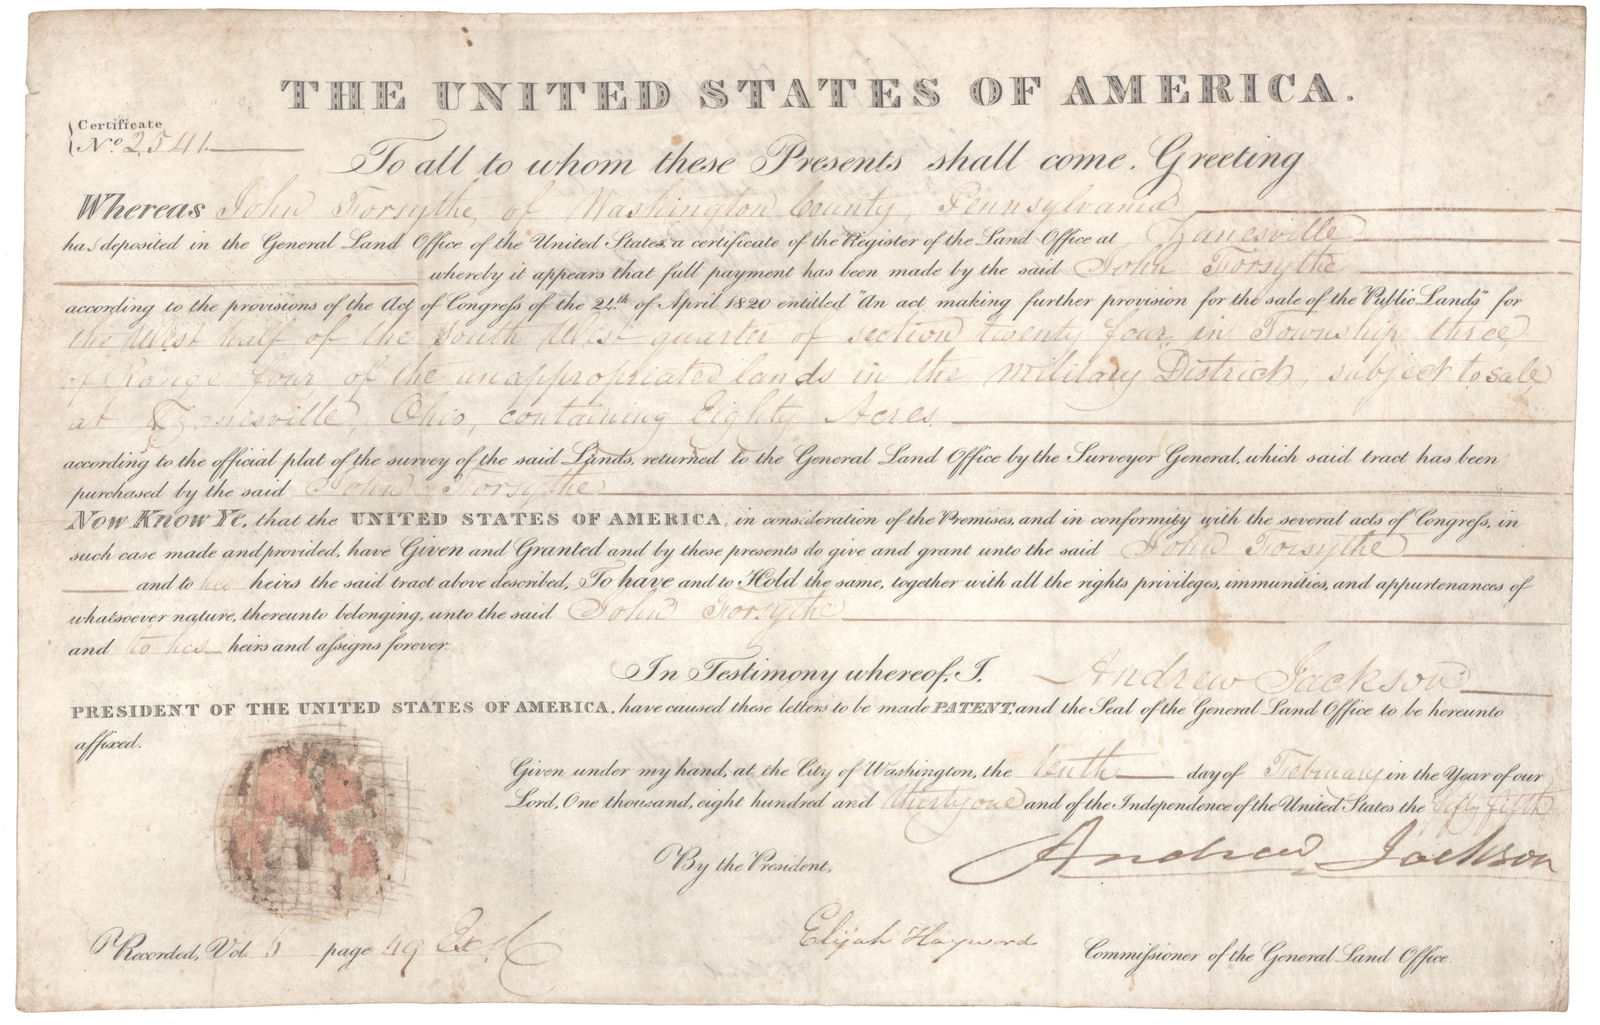 THE UNITED STATES OF AMERICA.
Certificate
No. 2541.
To all to whom these Presents shall come, Greeting
Whereas John Forsythe, of Washington County, Pennsylvania
has deposited in the General Land Office of the United States, a certificate of the Register of the Land Office at Zanesville
whereby it appears that full payment has been made by the said John Forsythe
according to the provisions of the Act of Congress of the 24th of April 1820 entitled "An act making further provision for the sale of the Public Lands" for
the West half of the South West quarter of section twenty four, in Township three,
of Range four of the unappropriated lands in the Military District, subject to sale
at Zanesville, Ohio, containing Eighty Acres.
according to the official plat of the survey of the said Lands, returned to the General Land Office by the Surveyor General, which said tract has been
purchased by the said John Forsythe
Now Know Ye, that the UNITED STATES OF AMERICA, in consideration of the Premises, and in conformity with the several acts of Congress, in
such case made and provided, have Given and Granted and by these presents do give and grant unto the said John Forsythe
and to his heirs the said tract above described, To have and to Hold the same, together with all the rights privileges, immunities, and appurtenances of
whatsoever nature, thereunto belonging, unto the said John Forsythe
and to his heirs and assigns forever.
In Testimony whereof, I, Andrew Jackson
PRESIDENT OF THE UNITED STATES OF AMERICA, have caused these letters to be made PATENT, and the Seal of the General Land Office to be hereunto
affixed.
Given under my hand, at the City of Washington, the tenth day of February in the Year of our
Lord, One thousand, eight hundred and thirty one and of the Independence of the United States the fifty fifth
Andrew Jackson
By the President,
Elijah Hayward Commissioner of the General Land Office.
Recorded, Vol. 6 page 49 Exd